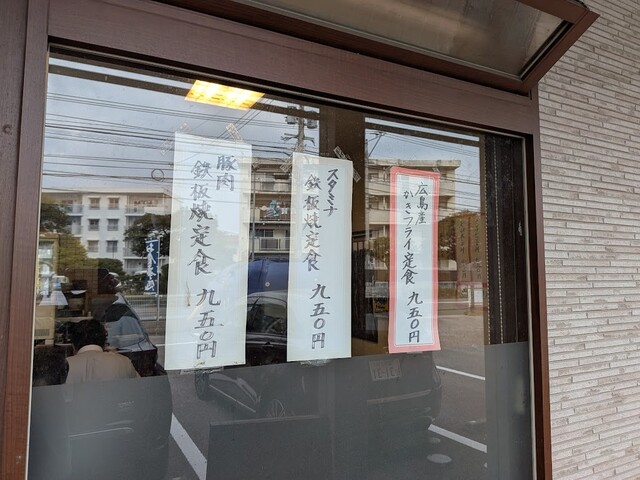 広島産
かきフライ定食 九五〇円
スタミナ
鉄板焼定食 九五〇円
豚肉
鉄板焼定食 九五〇円